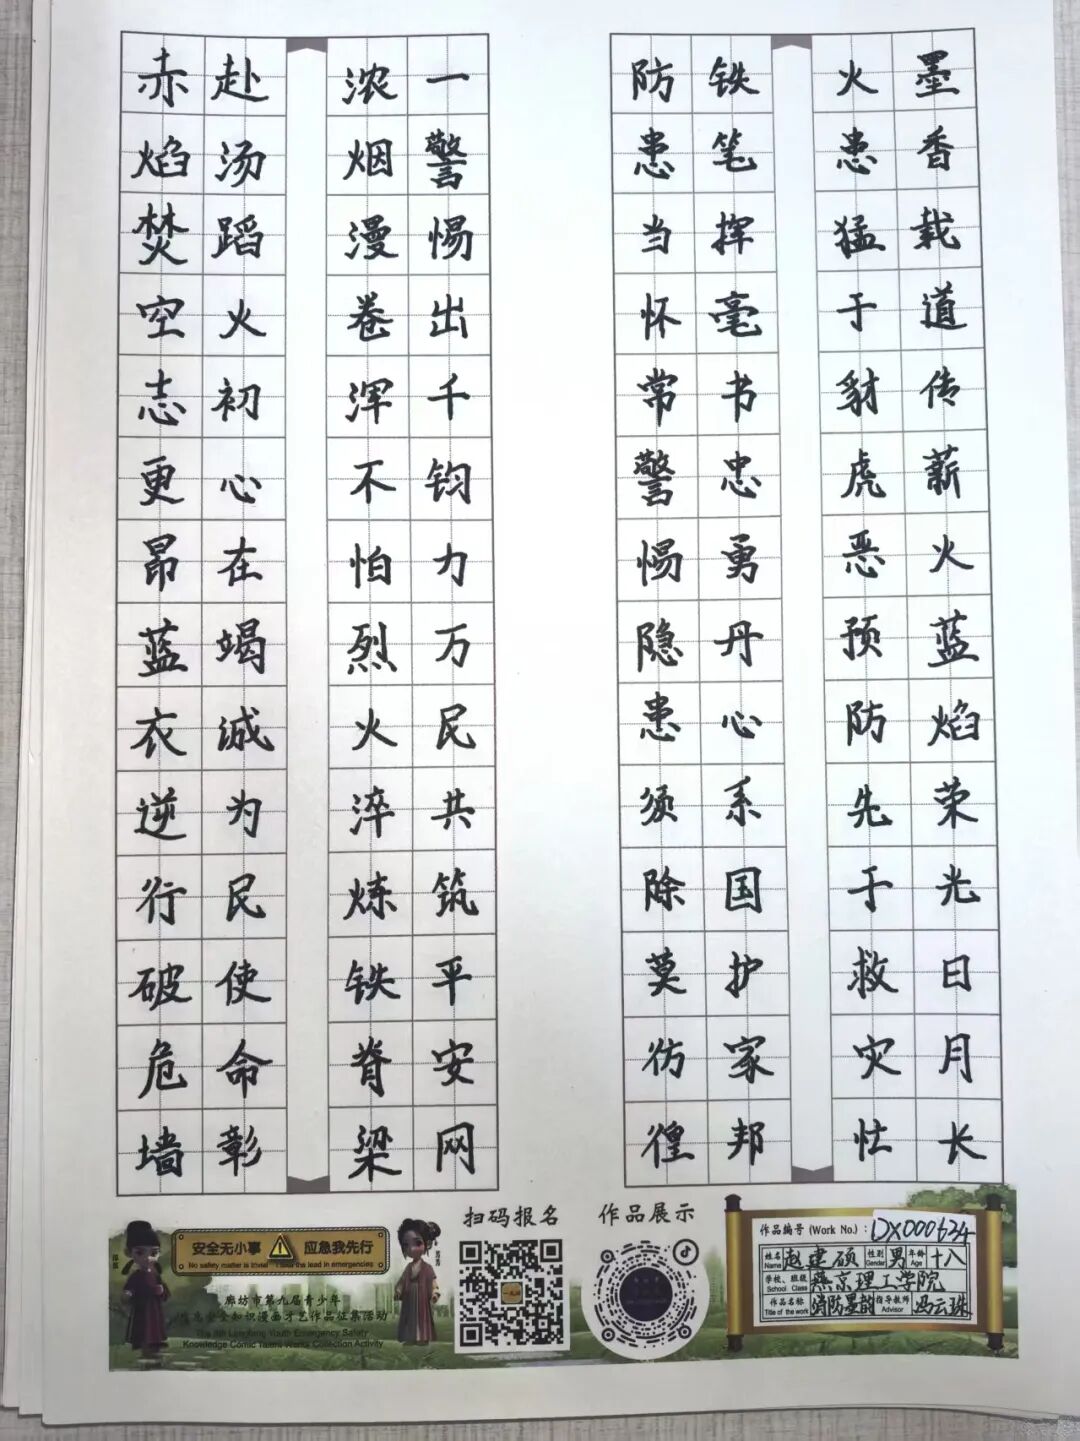 墨香载道传薪火蓝焰荣光日月长
火患猛于豺虎恶预防先于救灾忙
铁笔挥毫书忠勇丹心系国护家邦
防患当怀常警惕隐患须除莫彷徨
一警惕出千钧力万民共筑平安网
浓烟漫卷浑不怕烈火淬炼铁脊梁
赴汤蹈火初心在竭诚为民使命彰
赤焰焚空志更昂蓝衣逆行破危墙
安全无小事
应急我先行
No safety matter is trivial
Take the lead in emergencies
廊坊市第九届青少年
应急安全知识漫画才艺作品征集活动
The 9th Langfang Youth Emergency Safety
Knowledge Comic Talent Works Collection Activity
扫码报名
作品展示
作品编号 (Work No.): DX000634
姓名 Name 赵建硕 性别 Gender 男 年龄 Age 十八
学校、班级 School Class 燕京理工学院
作品名称 Title of the work 消防墨韵 指导教师 Advisor 冯云珠